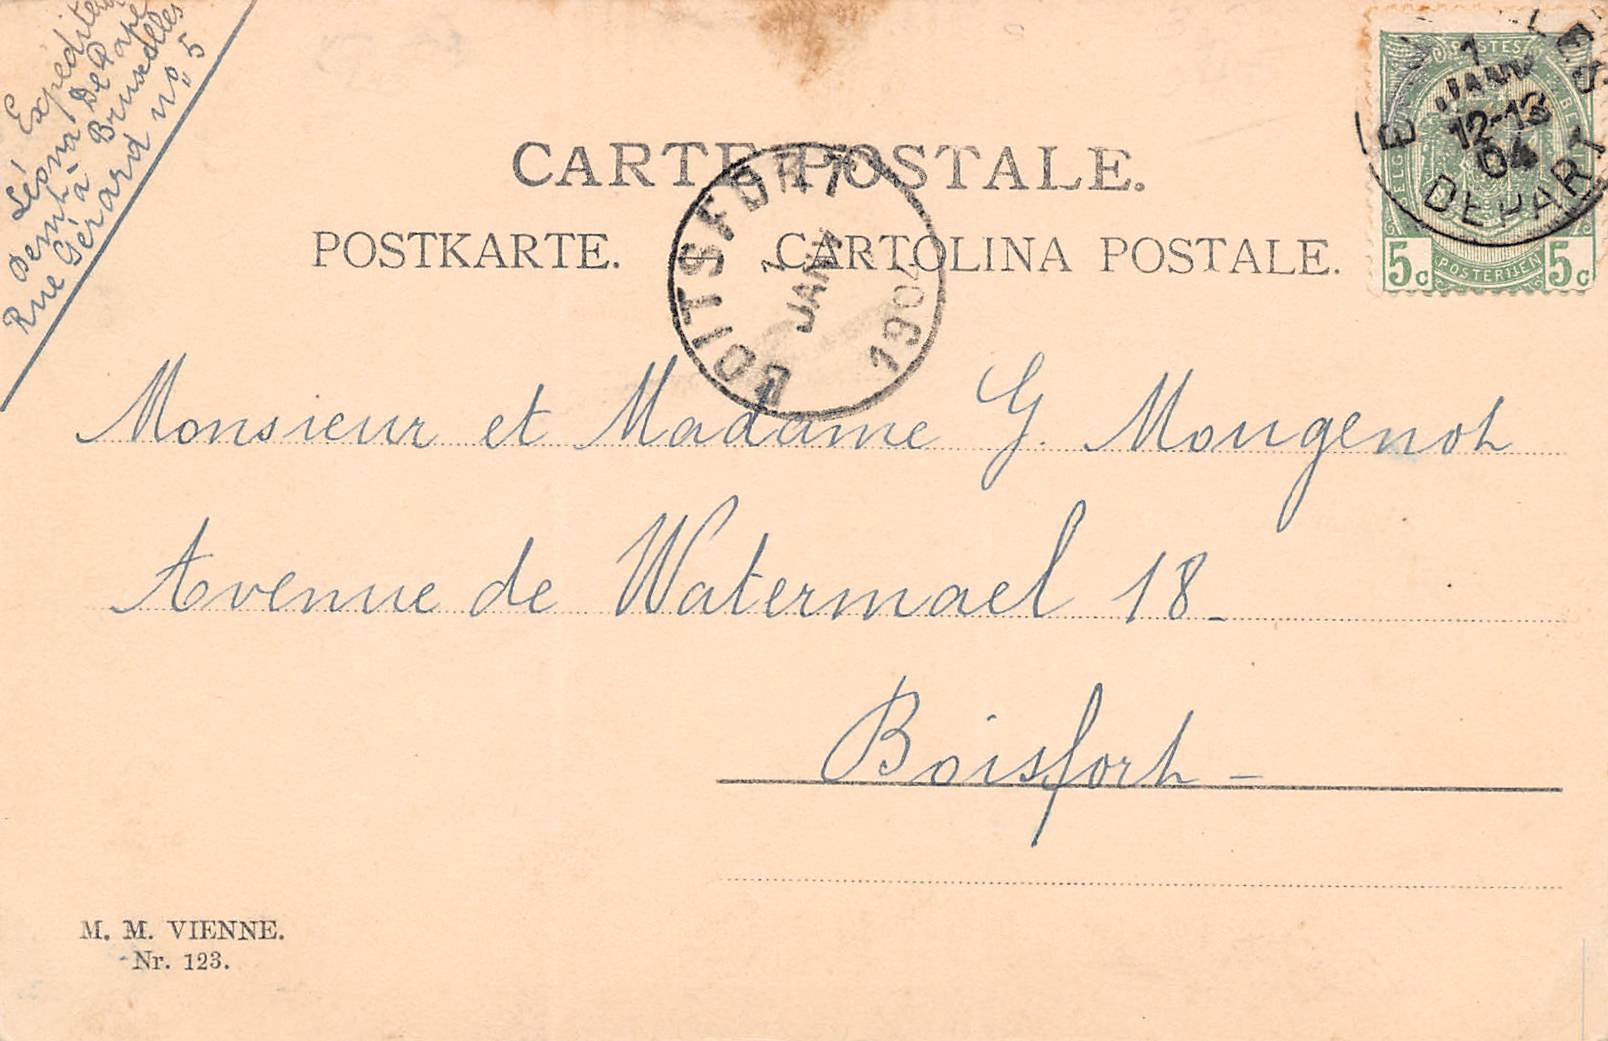 Expéditeur
Léona De Pape
Demt à Bruxelles
Rue Gérard no 5
CARTE POSTALE.
POSTKARTE. CARTOLINA POSTALE.
BOITSFORT
1
JANV
1904
POSTES
1
JANV
12-13
04
DEPART
5c POSTERIJEN 5c
Monsieur et Madame G. Mougenot
Avenue de Watermael 18_
Boisfort _
M. M. VIENNE.
Nr. 123.